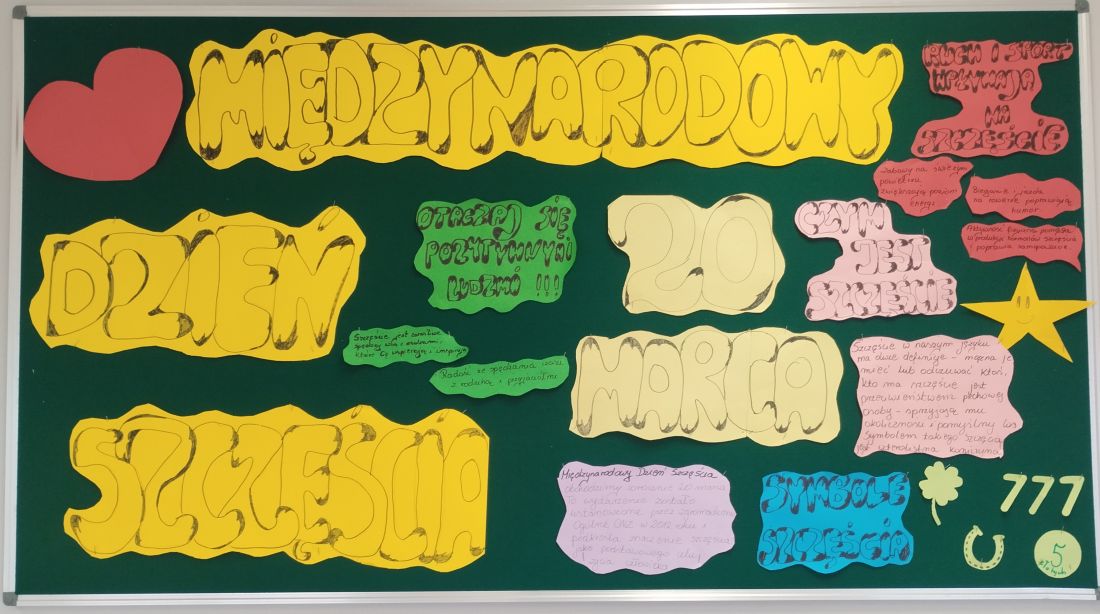 MIĘDZYNARODOWY
DZIEŃ
SZCZĘŚCIA
20
MARCA
RUCH I SPORT
WPŁYWAJĄ
NA
SZCZĘŚCIE
Zabawy na świeżym
powietrzu
zwiększają poziom
energi
Bieganie i jazda
na rowerze poprawiają
humor
Aktywność fizyczna pomaga
w produkcji hormonów szczęścia
i poprawia samopoczucie.
OTACZAJ SIĘ
POZYTYWNYMI
LUDZMI !!!
Szczęście jest
spędzaj z osobami,
które Cię wspierają i inspirują
Radość ze spędzania czasu
z rodziną i przyjaciółmi
CZYM
JEST
SZCZĘŚCIE
Szczęście w naszym języku
ma dwie definicje - można je
mieć lub odczuwać. Ktoś,
kto ma szczęście jest
przeciwieństwem pechowej
osoby - sprzyjają mu
okoliczności i pomyślny los
Symbolem takiego szczęścia
jest czterolistna koniczyna
Międzynarodowy Dzień Szczęścia
obchodzimy corocznie 20 marca
To wydarzenie zostało
ustanowione przez zgromadzenie
Ogólne ONZ w 2012 roku i
podkreśla znaczenie szczęścia
jako podstawowego
życia człowieka
SYMBOLE
SZCZĘŚCIA
777
5
złotych